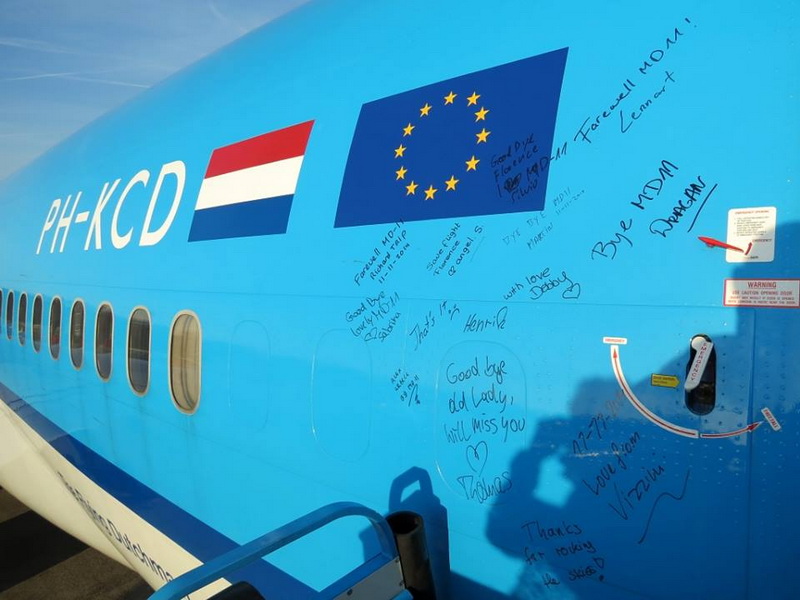 PH-KCD
Farewell MD11!
Lennart
Good bye
Florence
MD-11
Bye MD11
DRAGAN
BYE BYE MD11
MARTIN
Farewell MD-11
Richard
11-11-2014
Save flight
Florence
angel S
with love
Debby
Good Bye
lovely MD11
Sabina
That's it
Henrik
Good bye
old Lady,
will miss you
Thomas
Love from
Vizzini
Thanks
for rocking
the skies!
WARNING
EMERGENCY
The Flying Dutchman